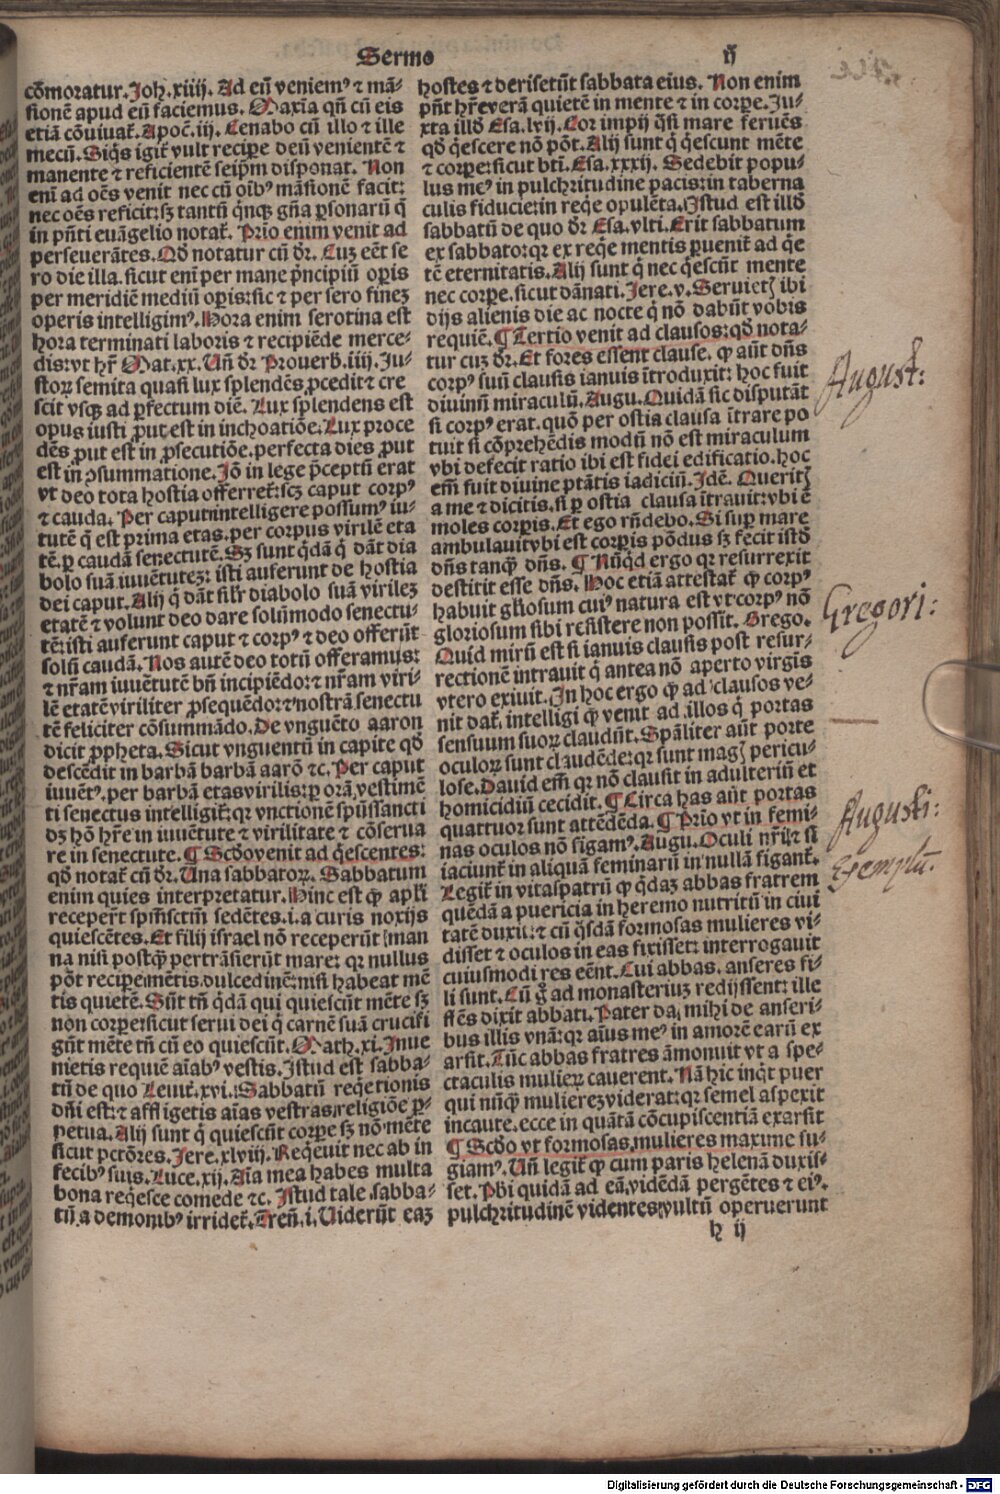 Sermo
ij
cōmoratur. Joh. xiiij. Ad eū veniemꝰ ⁊ mā-
sionē apud eū faciemus. Maxīa qn̄ cū eis
etiā cōviuat̄. Apoc̄. iij. Cenabo cū illo ⁊ ille
mecū. Siq̄s igit̄ vult recipe deū venientē ⁊
manente ⁊ reficientē seip̄m disponat. Non
enī ad oēs venit nec cū oībꝰ māsionē facit:
nec oēs reficit: sꝫ tantū q̄nqꝫ gn̄a ꝑsonarū q̄
in pn̄ti euāgelio notat̄. Prīo enim venit ad
perseuerātes. Qd̄ notatur cū dr̄. Cuꝫ eēt se
ro die illa. sicut enī per mane pn̄cipiū oꝑis
per meridiē mediū oꝑis: sic ⁊ per sero fineꝫ
operis intelligimꝰ. Hora enim serotina est
hora terminati laboris ⁊ recipiēde merce-
dis: vt hr̄ Mat. xx. Un̄ dr̄ Prouerb. iiij. Ju-
stoꝝ semita quasi lux splendēs ꝓcedit ⁊ cre
scit vsqꝫ ad ꝑfectum diē. Lux splendens est
opus iusti ꝓut est in inchoatiōe. Lux proce
dēs ꝓut est in ꝓsecutiōe. perfecta dies ꝓut
est in ꝯsummatione. Jō in lege p̄ceptū erat
vt deo tota hostia offerret̄: scꝫ caput corpꝰ
⁊ cauda. Per caput intelligere possumꝰ iu-
tutē q̄ est prima etas. per corpus virilē eta
tē. ꝑ caudā senectutē. Sꝫ sunt q̄dā q̄ dāt dia
bolo suā iuuētuteꝫ: isti auferunt de hostia
dei caput. Alij q̄ dāt sil̄r diabolo suā virileꝫ
etatē ⁊ volunt deo dare solūmodo senectu-
tē: isti auferunt caput ⁊ corpꝰ ⁊ deo offerūt
solū caudā. Nos autē deo totū offeramus:
⁊ nr̄am iuuētutē bn̄ incipiēdo: ⁊ nr̄am viri-
lē etatē viriliter ꝓsequēdo: ⁊ nostrā senectu
tē feliciter cōsummādo. De vnguēto aaron
dicit ꝓpheta. Sicut vnguentū in capite qd̄
descēdit in barbā barbā aarō ⁊c. Per caput
iuuētꝰ. per barbā etas virilis: ꝑ orā vestimē
ti senectus intelligit̄: qꝛ vnctionē spūssancti
dꝫ hō hr̄e in iuuētute ⁊ virilitate ⁊ cōserua
re in senectute. ¶ Scd̄o venit ad q̄escentes:
qd̄ notat̄ cū dr̄. Una sabbatoꝝ. Sabbatum
enim quies interpretatur. Hinc est ꝙ apl̄i
recepert̄ spm̄sctm̄ sedētes. i. a curis noxijs
quiescētes. Et filij israel nō receperūt man
na nisi postꝙ̄ pertrāsierūt mare: qꝛ nullus
pōt recipe mētis dulcedinē: nisi habeat mē
tis quietē. Sūt tn̄ q̄dā qui quiescūt mēte sꝫ
non corpe: sicut serui dei q̄ carnē suā crucifi
gūt mēte tn̄ cū eo quiescūt. Math. xi. Inue
nietis requiē aīabꝰ vestis. Istud est sabba-
tū de quo Leuit̄. xvi. Sabbatū reqetionis
dn̄i est: ⁊ affligetis aīas vestras religiōe ꝑ-
petua. Alij sunt q̄ quiescūt corpe sꝫ nō mēte
sicut pctōres. Jere. xlviij. Reqeuit nec ab in
fecibꝰ suis. Luce. xij. Aīa mea habes multa
bona reqesce comede ⁊c. Istud tale sabba-
tū a demonibꝰ irridet̄. Tren̄. i. Uiderūt eaꝫ
hostes ⁊ deriserūt sabbata eius. Non enim
pn̄t hr̄e verā quietē in mente ⁊ in corpe. Ju-
xta illd̄ Esa. lvij. Cor impij q̄si mare feruēs
qd̄ q̄escere nō pōt. Alij sunt q̄ q̄escunt mēte
⁊ corpe: sicut bti. Esa. xxxij. Sedebit popu-
lus meꝰ in pulchritudine pacis: in taberna
culis fiducie: in reqe opulēta. Istud est illd̄
sabbatū de quo dr̄ Esa. vlti. Erit sabbatum
ex sabbato: qꝛ ex reqe mentis ꝑuenit̄ ad q̄e
tē eternitatis. Alij sunt q̄ nec q̄escūt mente
nec corpe. sicut dānati. Jere. v. Seruietꝭ ibi
dijs alienis die ac nocte q̄ nō dabūt vobis
requiē. ¶ Tertio venit ad clausos: qd̄ nota-
tur cuꝫ dr̄. Et fores essent clause. ꝙ aūt dn̄s
corpꝰ suū clausis ianuis ītroduxit: hoc fuit
diuinū miraculū. Augu. Quidā sic disputāt
si corpꝰ erat. quō per ostia clausa ītrare po
tuit si cōprehēdis modū nō est miraculum
vbi defecit ratio ibi est fidei edificatio. hoc
em̄ fuit diuine ptātis iādiciū. Jdē. Queritꝭ
a me ⁊ dicitis. si ꝑ ostia clausa ītrauit: vbi ē
moles corꝑis. Et ego rn̄debo. Si suꝑ mare
ambulauit vbi est corꝑis pōdus sꝫ fecit istd̄
dn̄s tanqꝫ̄ dn̄s. ¶ Nūqd ergo qꝛ resurrexit
destitit esse dn̄s. Hoc etiā attestat̄ ꝙ corpꝰ
habuit gl̄iosum cuiꝰ natura est vt corpꝰ nō
gloriosum sibi resistere non possit. Grego.
Quid mirū est si ianuis clausis post resur-
rectionē intrauit q̄ antea nō aperto virgis
vtero exiuit. In hoc ergo ꝙ ad clausos ve-
nit dat̄ intelligi ꝙ venit ad illos q̄ portas
sensuum suoꝝ claudūt. Spāliter aūt porte
oculoꝝ sunt claudēde: qꝛ sunt magꝭ pericu-
lose. David em̄ qꝛ nō clausit in adulteriū et
homicidiū cecidit. ¶ Circa has aūt portas
quattuor sunt attēdēda. ¶ Prīo vt in femi-
nas oculos nō figamꝰ. Augu. Oculi nr̄i ⁊ si
iaciunt̄ in aliquā feminarū in nullā figant̄.
Legit̄ in vitaspatrū ꝙ q̄daꝫ abbas fratrem
quēdā a puericia in heremo nutritū in ciui
tatē duxit: ⁊ cū q̄sdā formosas mulieres vi-
disset ⁊ oculos in eas fixisset: interrogauit
cuiusmodi res eēnt. Cui abbas. anseres fi-
li sunt. Cū g̊ ad monasteriuꝫ redijssent: ille
flēs dixit abbati. Pater da mihi de anseri-
bus illis vnā: qꝛ aīus meꝰ in amorē earū ex
arsit. Tūc abbas fratres āmonuit vt a spe-
ctaculis mulieꝝ cauerent. Nā hic inqt puer
qui nūqꝫ̄ muliereꝫ viderat: qꝛ semel aspexit
incaute. ecce in quātā cōcupiscentiā exarsit
¶ Scd̄o vt formosas mulieres maxime fu-
giamꝰ. Un̄ legit̄ ꝙ cum paris helenā duxis-
set. Pbi quidā ad eā vidēdā pergētes ⁊ eiꝰ.
pulchritudinē videntes vultū operuerunt
h ij
August:
Gregori:
Augusti:
Exemplū.
Digitalisierung gefördert durch die Deutsche Forschungsgemeinschaft - DFG